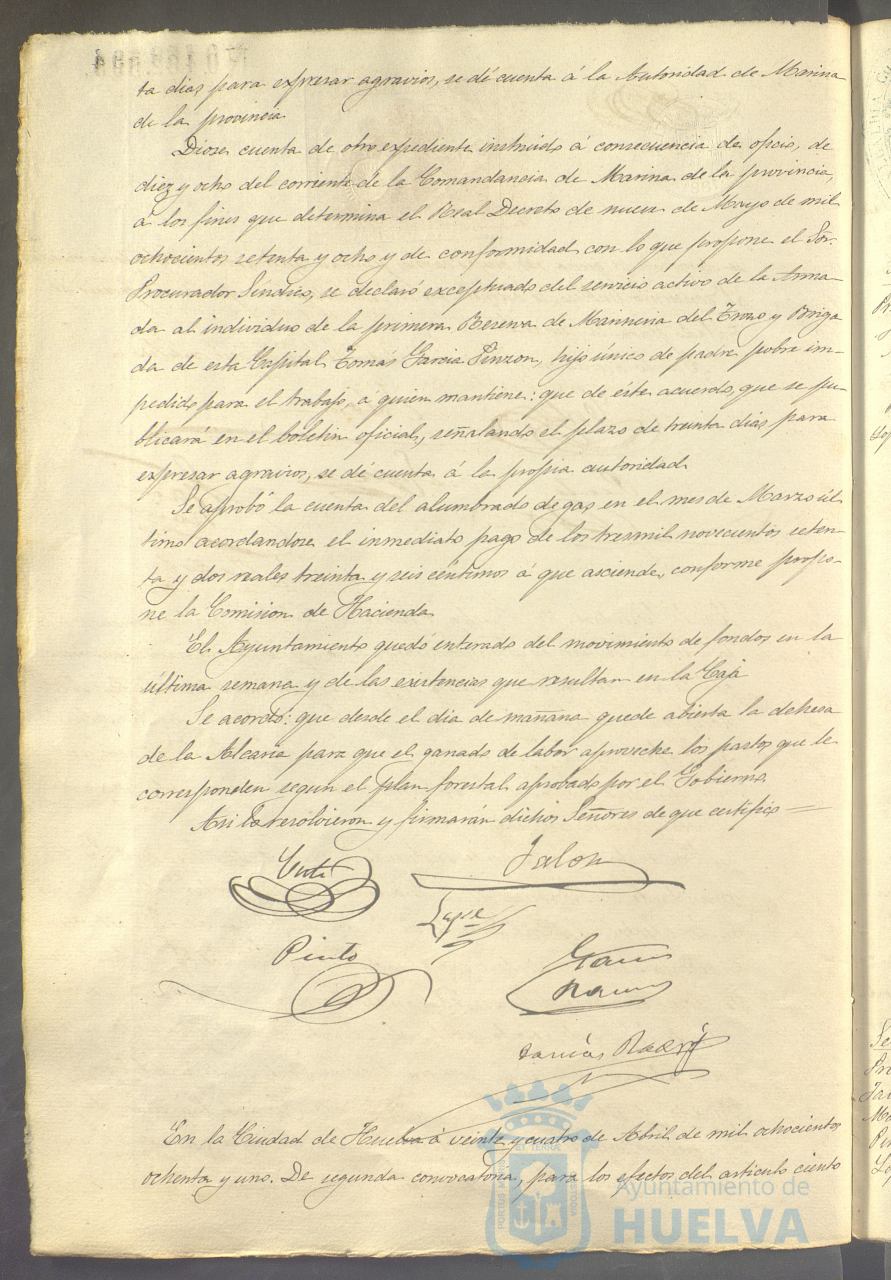 ta dias para expresar agravios, se dé cuenta á la Autoridad de Marina
de la provincia
Diose cuenta de otro expediente instruido á consecuencia de oficio, de
diez y ocho del corriente de la Comandancia de Marina de la provincia,
á los fines que determina el Real Decreto de nueve de Mayo de mil
ochocientos setenta y ocho y de conformidad con lo que propone el Sor.
Procurador Sindico, se declaró exceptuado del servicio activo de la Arma-
da al individuo de la primera Reserva de Marineria del Trozo y Briga
da de esta Capital Tomás Garcia Pinzon, hijo único de padre pobre im-
pedido para el trabajo, a quien mantiene: que de este acuerdo, que se pu-
blicará en el boletin oficial, señalando el plazo de treinta dias para
expresar agravios, se dé cuenta á la propia autoridad
Se aprobó la cuenta del alumbrado de gas en el mes de Marzo úl
timo acordandose el inmediato pago de los tresmil novecientos seten-
ta y dos reales treinta y seis céntimos á que asciende, conforme propo-
ne la Comision de Hacienda
El Ayuntamiento quedó enterado del movimiento de fondos en la
última semana y de las existencias que resultan en la Caja
Se acordó: que desde el dia de mañana quede abierta la dehesa
de la Alcaria para que el ganado de labor aproveche los pastos que le
corresponden segun el plan forestal aprobado por el Gobierno
Asi lo resolvieron y firmarán dichos Señores de que certifico
Jalon
Pinto
Garcia
Ramos
En la Ciudad de Huelva á veinte y cuatro de Abril de mil ochocientos
ochenta y uno. De segunda convocatoria, para los efectos del articulo ciento
Ayuntamiento de
HUELVA